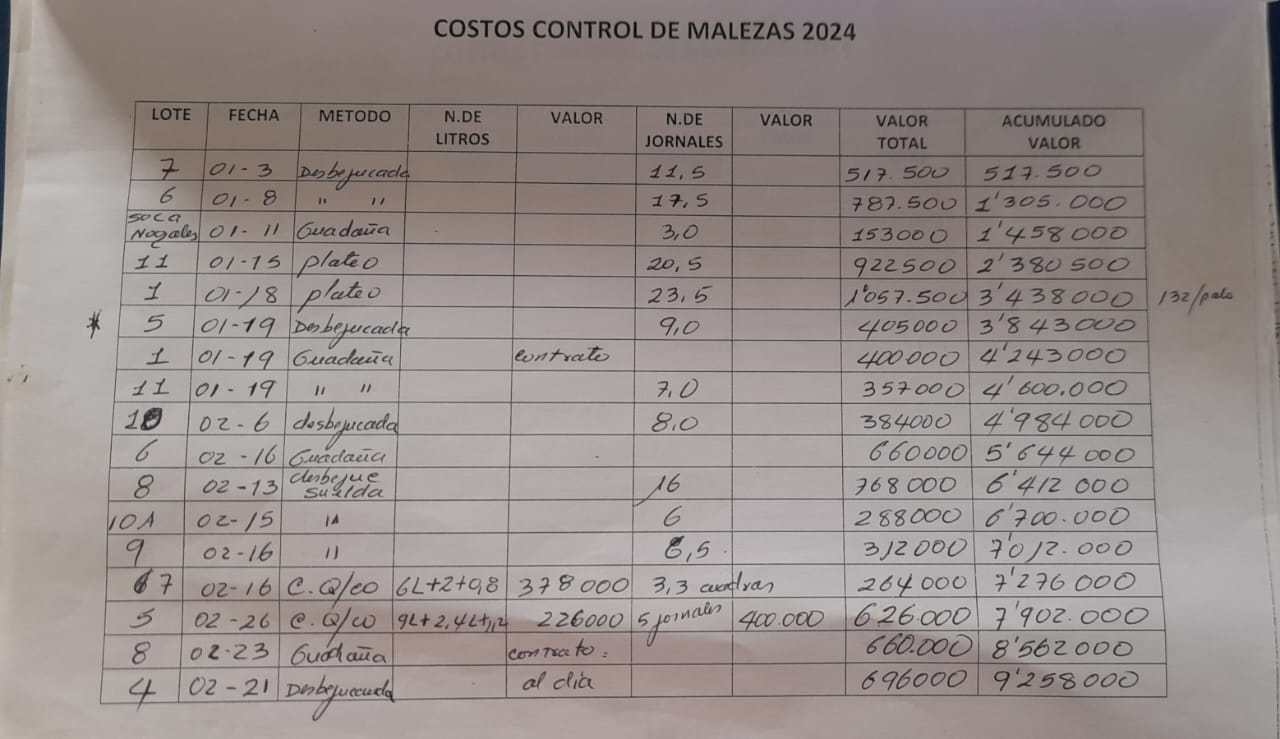 COSTOS CONTROL DE MALEZAS 2024
LOTE FECHA METODO N.DE LITROS VALOR N.DE JORNALES VALOR VALOR TOTAL ACUMULADO VALOR
7 01-3 Desbejucada 11,5 517.500 517.500
6 01-8 " " 17,5 787.500 1'305.000
Soca Nogales 01-11 Guadaña 3,0 153000 1'458000
11 01-15 plateo 20,5 922500 2'380500
1 01-18 plateo 23,5 1'057.500 3'438000 132/palo
* 5 01-19 Desbejucada 9,0 405000 3'843000
1 01-19 Guadaña contrato 400.000 4'243000
11 01-19 " " 7,0 357000 4'600.000
10 02-6 desbejucada 8,0 384000 4'984000
6 02-16 Guadaña 660000 5'644000
8 02-13 desbejue suelda 16 768000 6'412000
10A 02-15 " 6 288000 6'700.000
9 02-16 " 6,5 312000 7'012.000
7 02-16 C.Q/co 6L+2+0,8 378000 3,3 cuadras 264000 7'276000
5 02-26 C.Q/co 9L+2,4L+1,2 226000 5 jornales 400.000 626.000 7'902.000
8 02-23 Guadaña contrato: 660.000 8'562000
4 02-21 Desbejucada al dia 696000 9'258000